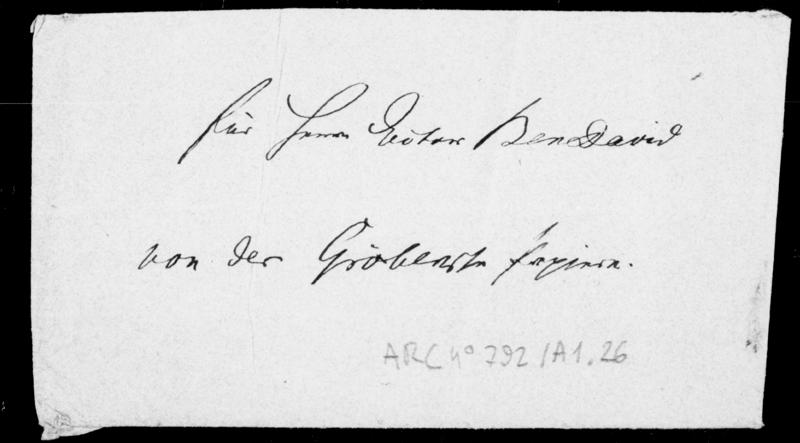 Für Herrn Doctor BenDavid
von der Gröbensche Papiere.
ARC 4º 792 /A1.26